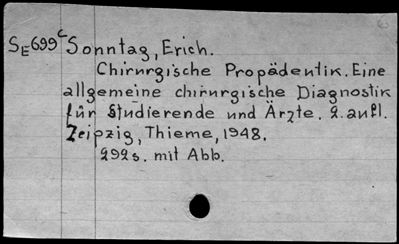 SE699c Sonntag, Erich.
Chirurgische Propädeutik. Eine
allgemeine chirurgische Diagnostik
für Studierende und Ärzte. 2. aufl.
Leipzig, Thieme, 1948.
292s. mit Abb.